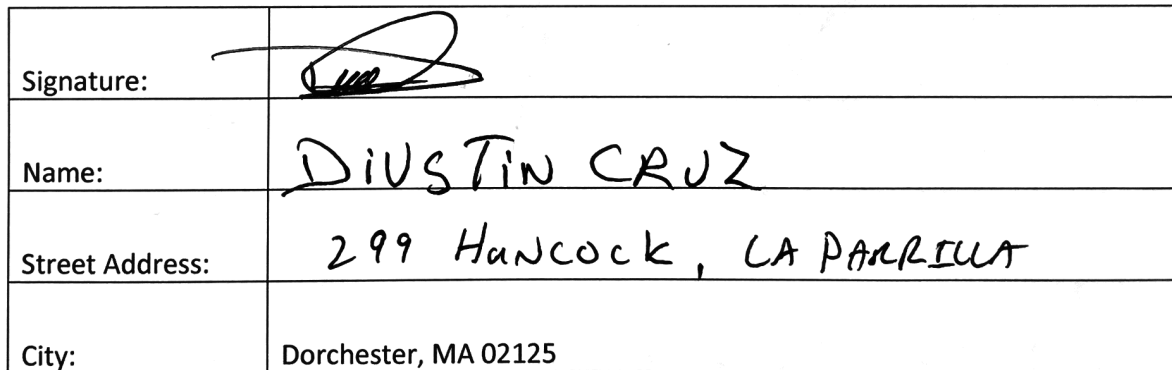 Signature:
Name: DiUSTiN CRUZ
Street Address: 299 HaNCOCK, LA PARRILLA
City: Dorchester, MA 02125